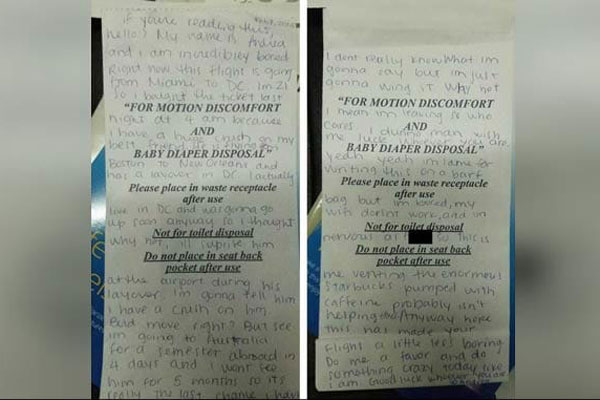 if you're reading this,
hello! My name is Andrea
and I am incredibley bored
Right now this flight is going
from Miami to DC. Im 21
so I bought the ticket last
"FOR MOTION DISCOMFORT
night at 4 am because
AND
I have a huge crush on my
BABY DIAPER DISPOSAL"
best friend.
Boston to New Orleans and
Please place in waste receptacle
has a layover in DC I actually
after use
live in DC and was gonna go
up soon anyway so I thought
Not for toilet disposal
why not, ill suprise him
Do not place in seat back
pocket after use
at the airport during his
layover. Im gonna tell him
I have a crush on him
Bold move right? But see
im going to Australia
for a semester abroad in
4 days and I wont see
him for 5 months so its
really the last chance I have
I dont really know what im
gonna say but im just
gonna wing it. Why not
"FOR MOTION DISCOMFORT
I mean im leaving so who
AND
cares. I dunno man wish
me luck you are.
BABY DIAPER DISPOSAL"
yeah yeah im lame for
writing this on a barf
Please place in waste receptacle
after use
bag but im bored, my
wifi doesnt work, and im
Not for toilet disposal
nervous as so this is
Do not place in seat back
pocket after use
me venting the enormous
Starbucks pumped with
caffeine probably isn't
helping. Anyway hope
this has made your
flight a little less boring
Do me a favor and do
something crazy today like
I am. Good luck whoever you are